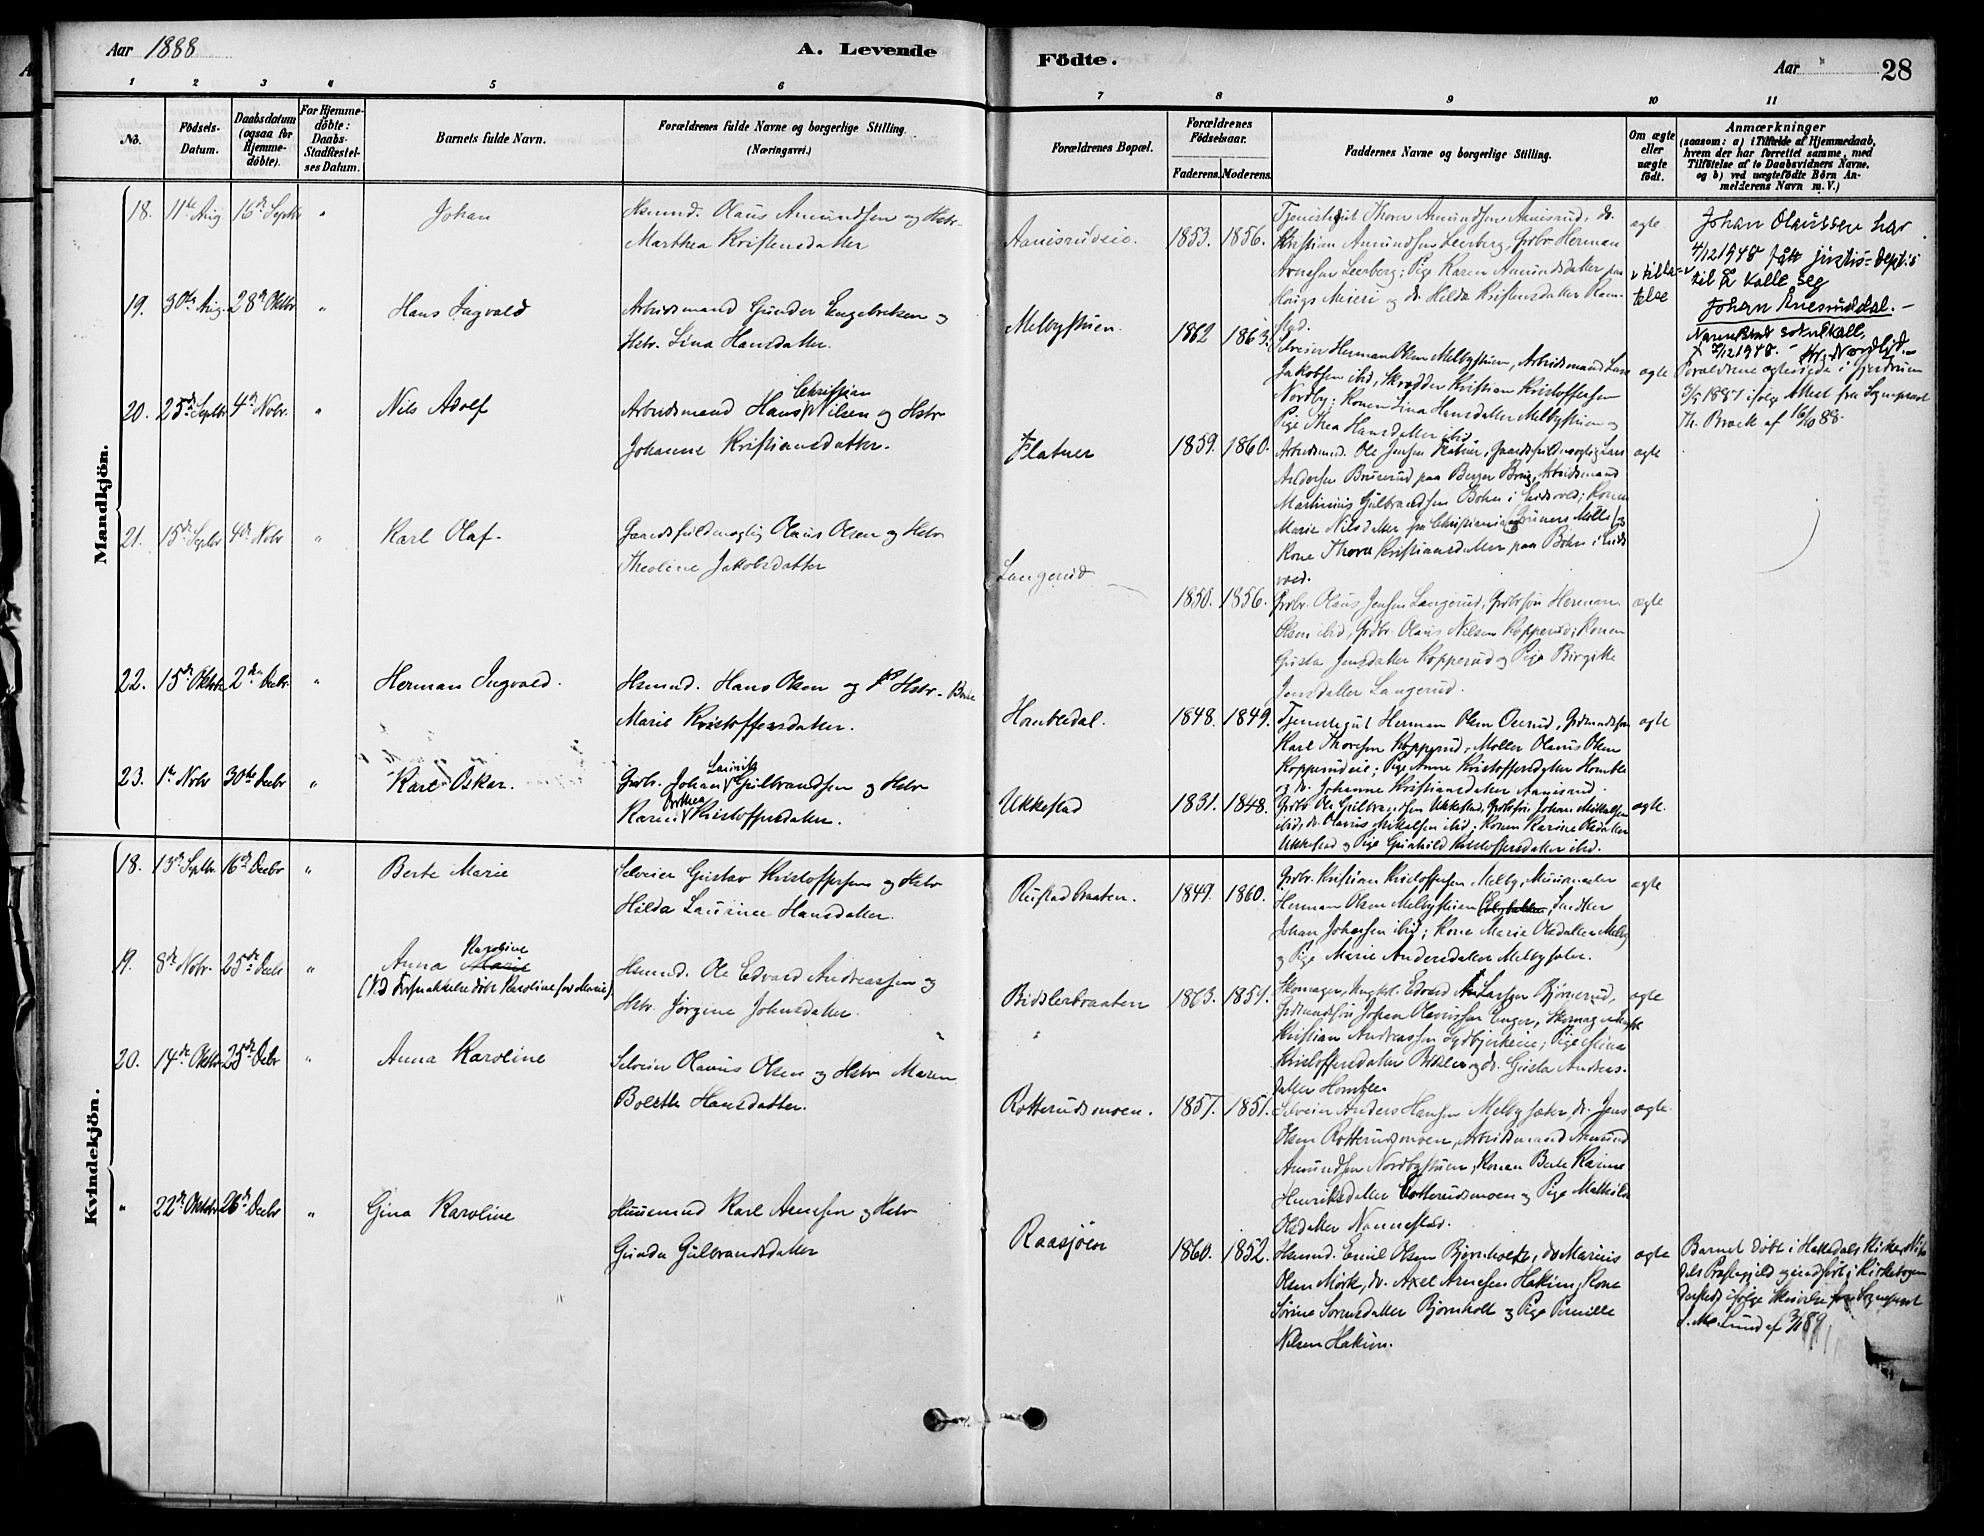 Aar 1888
A. Levende
Födte.
Aar " 28
1 2 3 4 5 6 7 8 9 10 11
No.
Födsels-
Datum.
Daabsdatum
(ogsaa for
Hjemme-
döbte).
For Hjemme-
döbte:
Daabs-
Stadfæstel-
ses Datum.
Barnets fulde Navn.
Forældrenes fulde Navne og borgerlige Stilling.
(Næringsvei.)
Forældrenes Bopæl.
Forældrenes
Födselsaar.
Faderens. Moderens.
Faddernes Navne og borgerlige Stilling.
Om ægte
eller
uægte
födt.
Anmærkninger
(saasom: a) i Tilfælde af Hjemmedaab,
hvem der har forrettet samme, med
Tilföielse af to Daabsvidners Navne,
og b) ved uægtefödte Börn An-
melderens Navn m. V.)
Mandkjön.
18. 11te Aug 16de Septbr " Johan
Hsmnd. Olaus Amundsen og Hstr.
Marthea Kristensdatter
Aamisrudeie. 1853. 1856.
Tjenestegut Thorv Amundsen Aamisrud, do.
Kristian Amundsen Leerberg, Grdbr. Herman
Arnesen Leerberg; Pige Karen Amundsdatter paa
Haugs Meieri og do. Helda Kristensdatter Ram-
stad.
ægte
Johan Olaussen har
4/12 1948 fått justis-dept's
til å kalle seg
Johan Ånesruddal.
19. 30te Aug. 28de Oktbr " Hans Ingvald
Arbeidsmand Gunder Engebretsen og
Hstr. Lina Hansdatter.
Melbystuen. 1862 1863.
Selveier Herman Olsen Melbystuen, Arbeidsmand Lars
Jakobsen ibid, Skrædder Kristian Kristoffersen
Nordby; Konen Lina Hansdatter Melbystuen og
Pige Thea Hansdatter ibid
ægte
Forældrene ægteviede i Gjerdrum
3/5 1887 ifølge Attest fra Sognepræst
Th. Brock af 16/10 88.
20. 25de Septbr 4de Novbr. " Nils Adolf
Arbeidsmand Hans Christian Nilsen og Hstr
Johanne Kristiansdatter.
Flatner 1859. 1860.
Arbeidsmd. Ole Jensen Flatner, Gaardsfuldmægtig Lars
Andersen Bruserud paa Berger Brug, Arbeidsmand
Martinius Gulbrandsen Bohn i Eidsvold; Konen
Marie Nilsdatter fra Christiania Bruners Mølle og
Kone Thora Kristiansdatter paa Bohn i Eids
vold.
ægte
21. 15de Septbr 4de Novbr " Karl Olaf.
Gaardsfuldmægtig Olaus Olsen og Hstr
Theoline Jakobsdatter
Langerud 1850. 1856.
Grdbr. Olaus Jensen Langerud, Grdbrsøn Herman
Olsen ibid, Grdbr. Olaus Nilsen Kopperud; Konen
Gusta Jensdatter Kopperud og Pige Birgitte
Jensdatter Langerud.
ægte
22. 15de Oktbr 2den Decbr. " Herman Ingvald.
Hsmnd. Hans Olsen og Hstr. Berte
Marie Kristoffersdatter.
Hombledal. 1848. 1849.
Tjenestegut Herman Olsen Ourud, Grdmandssøn
Karl Thoresen Kopperud, Møller Olavus Olsen
Kopperudeie; Pige Anne Kristoffersdatter Homble
og do. Johanne Kristiansdatter Aamisrud.
ægte
23. 1ste Novbr 30te Decbr " Karl Oskar.
Grdbr. Johan Laurits Gulbrandsen og Hstr
Karen Dorthea Kristoffersdatter.
Ukkestad 1831. 1848.
Grdbr. Ole Gulbrandsen Ukkestad, Grdbrsøn Johan Mikalsen
ibid, do. Olavus Mikalsen ibid; Konen Karine Olsdatter
Ukkestad og Pige Gunhild Kristoffersdatter ibid.
ægte.
Kvindekjön.
18. 13de Septbr. 16de Decbr " Berte Marie
Selveier Gustav Kristoffersen og Hstr
Hilda Laurine Hansdatter.
Rustadbraaten. 1849. 1860.
Grdbr. Kristian Kristoffersen Melby, Murmester
Herman Olsen Melbystuen, Snedker
Johan Johansen ibid; Kone Marie Olsdatter Melby
og Pige Marie Andersdatter Melbysæter.
ægte
19. 8de Novbr. 25de Decbr " Anna Karoline Marie
(Ved Forsnakkelse døbt Karoline for Marie).
Hsmnd. Ole Edvard Andreassen og
Hstr. Jørgine Johnsdatter.
Bidslerbraaten 1863. 1859.
Skomager, Ungkl. Edvard Larsen Bjørnerud,
Grdmandssøn Johan Olavussen Enger, Skomager
Kristian Andreassen Sydbjerkeeie; Pige Stina
Kristoffersdatter Bidsler og do. Gusta Andreas-
datter Homble.
ægte
20. 14de Oktbr 25de Decbr " Anna Karoline
Selveier Olavus Olsen og Hstr Maren
Bolette Hansdatter.
Rotterudsmoen. 1857. 1851.
Selveier Anders Hansen Melbysæter, do. Jens
Olsen Rotterudsmoen, Arbeidsmand Amund
Amundsen Nordbystuen, Konen Berte Karine
Henriksdatter Rotterudsmoen og Pige Mathilde
Olsdatter Nannestad.
ægte
" 22de Oktbr 26de Decbr " Gina Karoline
Huusmand Karl Arnesen og Hstr
Gunda Gulbrandsdatter
Raasjøen 1860. 1852.
Hsmnd. Emil Olsen Bjørnholt, do Marius
Olsen Mørk, do. Axel Arnesen Hakim; Kone
Sørine Sørensdatter Bjørnholt og Pige Pernille
Nilsen Hakim.
ægte
Barnet døbt i Hakedals Kirke, Nite
dals Præstegjeld og indført i Kirkebogen
dersteds ifølge Skrivelse fra Sognepræst